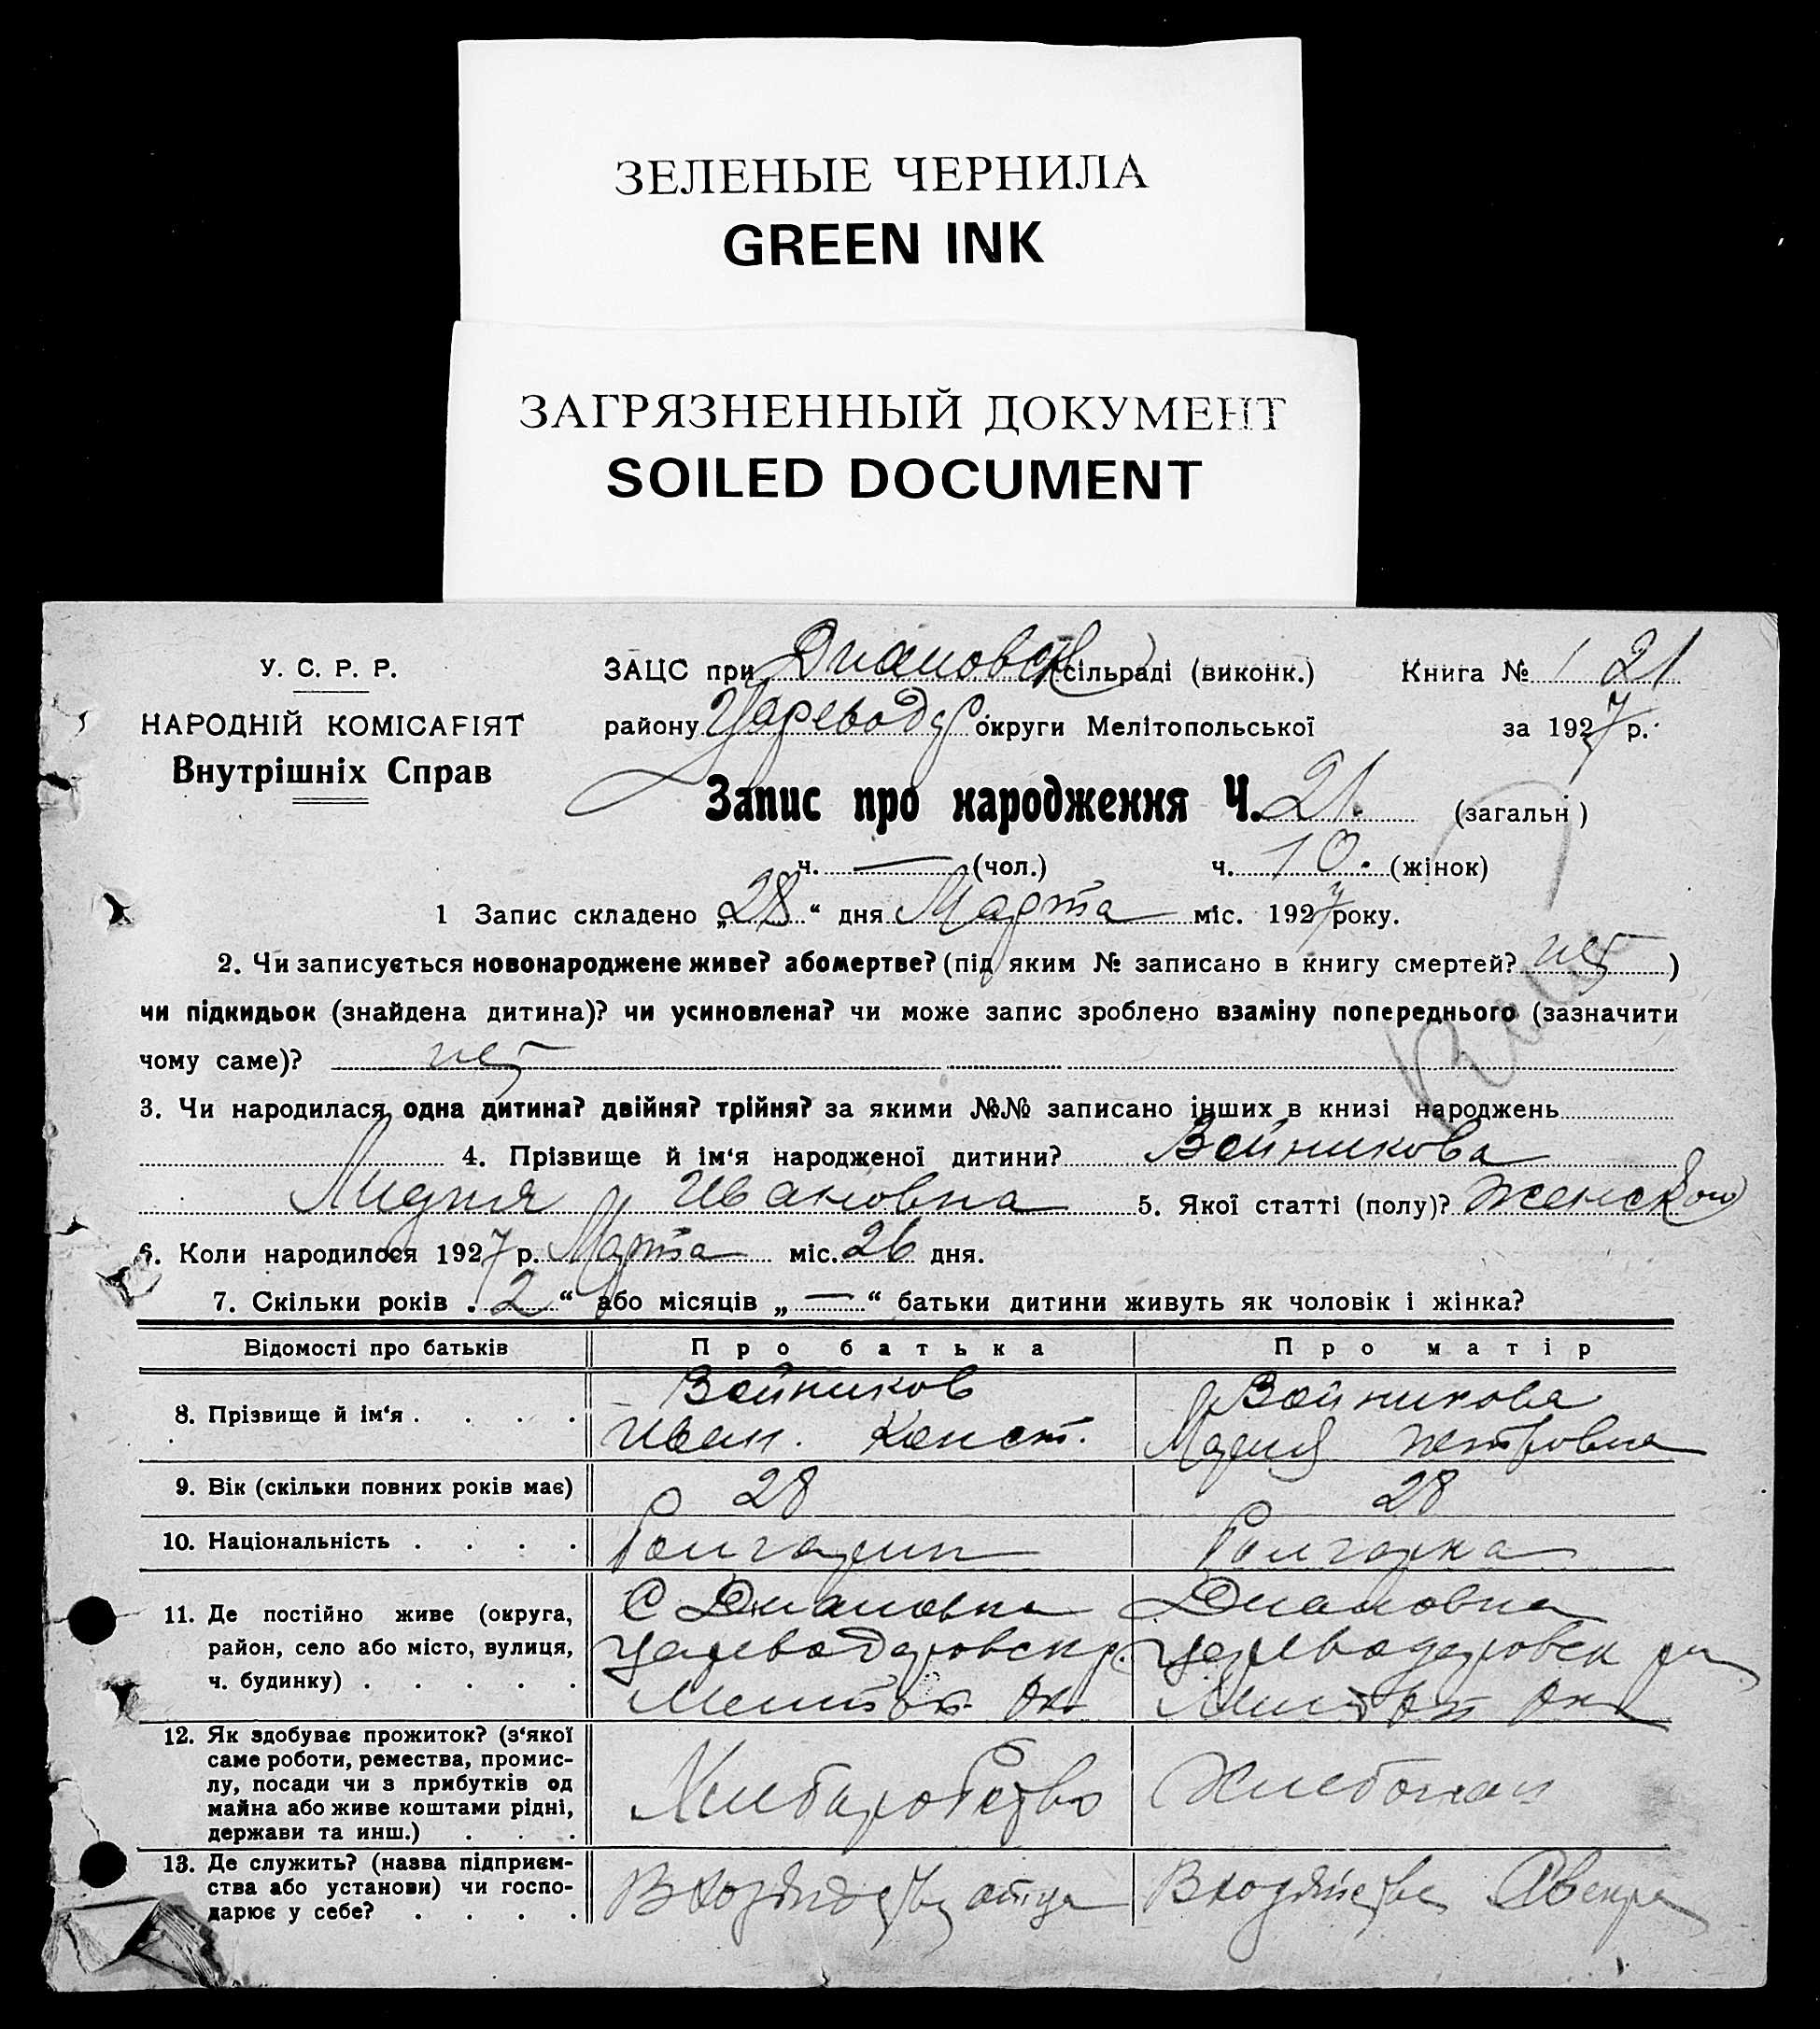 ЗЕЛЕНЫЕ ЧЕРНИЛА
GREEN INK
ЗАГРЯЗНЕННЫЙ ДОКУМЕНТ
SOILED DOCUMENT
У. С. Р. Р.
НАРОДНІЙ КОМІСАРІЯТ
Внутрішніх Справ
ЗАЦС при Диановск (сільраді (виконк.) Книга № 1 21
району Царевод округи Мелітопольської за 1927 р.
Запис про народження Ч. 21. (загальн)
ч. — (чол.) ч. 10. (жінок)
1 Запис складено „28“ дня Марта міс. 1927 року.
2. Чи записується новонароджене живе? або мертве? (під яким № записано в книгу смертей? нет )
чи підкидьок (знайдена дитина)? чи усиновлена? чи може запис зроблено взаміну попереднього (зазначити
чому саме)? нет
3. Чи народилася одна дитина? двійня? трійня? за якими №№ записано інших в книзі народжень
4. Прізвище й ім‘я народженої дитини? Войникова
Лидия Ивановна 5. Якої статті (полу)? женской
6. Коли народилося 1927 р. Марта міс. 26 дня.
7. Скільки років „2“ або місяців „—“ батьки дитини живуть як чоловік і жінка?
Відомості про батьків Про батька Про матір
8. Прізвище й ім‘я . . . . Войников Иван. Конст. Войникова Мария Петровна
9. Вік (скільки повних років має) 28 28
10. Національність . . . . Болгарин Болгарка
11. Де постійно живе (округа, С Диановка Диановка
район, село або місто, вулиця, Цареводаровск р. Цареводаровск
ч. будинку) . . . . . Мелитоп Ок
12. Як здобуває прожиток? (з‘якої
саме роботи, ремества, промис-
лу, посади чи з прибутків од
майна або живе коштами рідні,
держави та инш.) . . .
13. Де служить? (назва підприєм-
ства або установи) чи госпо-
дарює у себе? . . . . отца